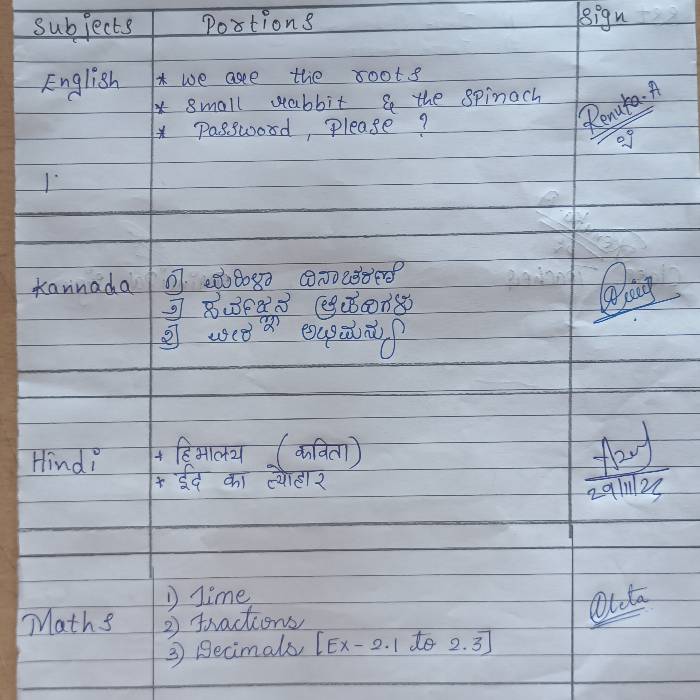 Subjects Portions Sign
English * we are the roots
* Small rabbit & the spinach
* Password, Please ?
Renuka. A
1.
Kannada ೧) ಮಹಿಳಾ ದಿನಾಚರಣೆ
೨) ಸರ್ವಜ್ಞನ ತ್ರಿಪದಿಗಳು
೩) ವೀರ ಅಭಿಮನ್ಯು
Hindi * हिमालय (कविता)
* ईद का त्योहार
29/11/23
Maths 1) Time
2) Fractions
3) Decimals [Ex - 2.1 to 2.3]